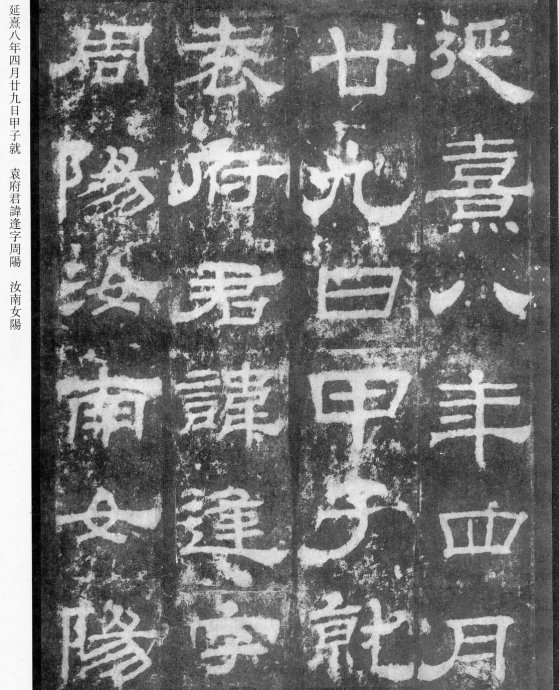 延熹八年四月
廿九日甲子就
袁府君諱逢字
周陽汝南女陽
延熹八年四月廿九日甲子就　袁府君諱逢字周陽　汝南女陽